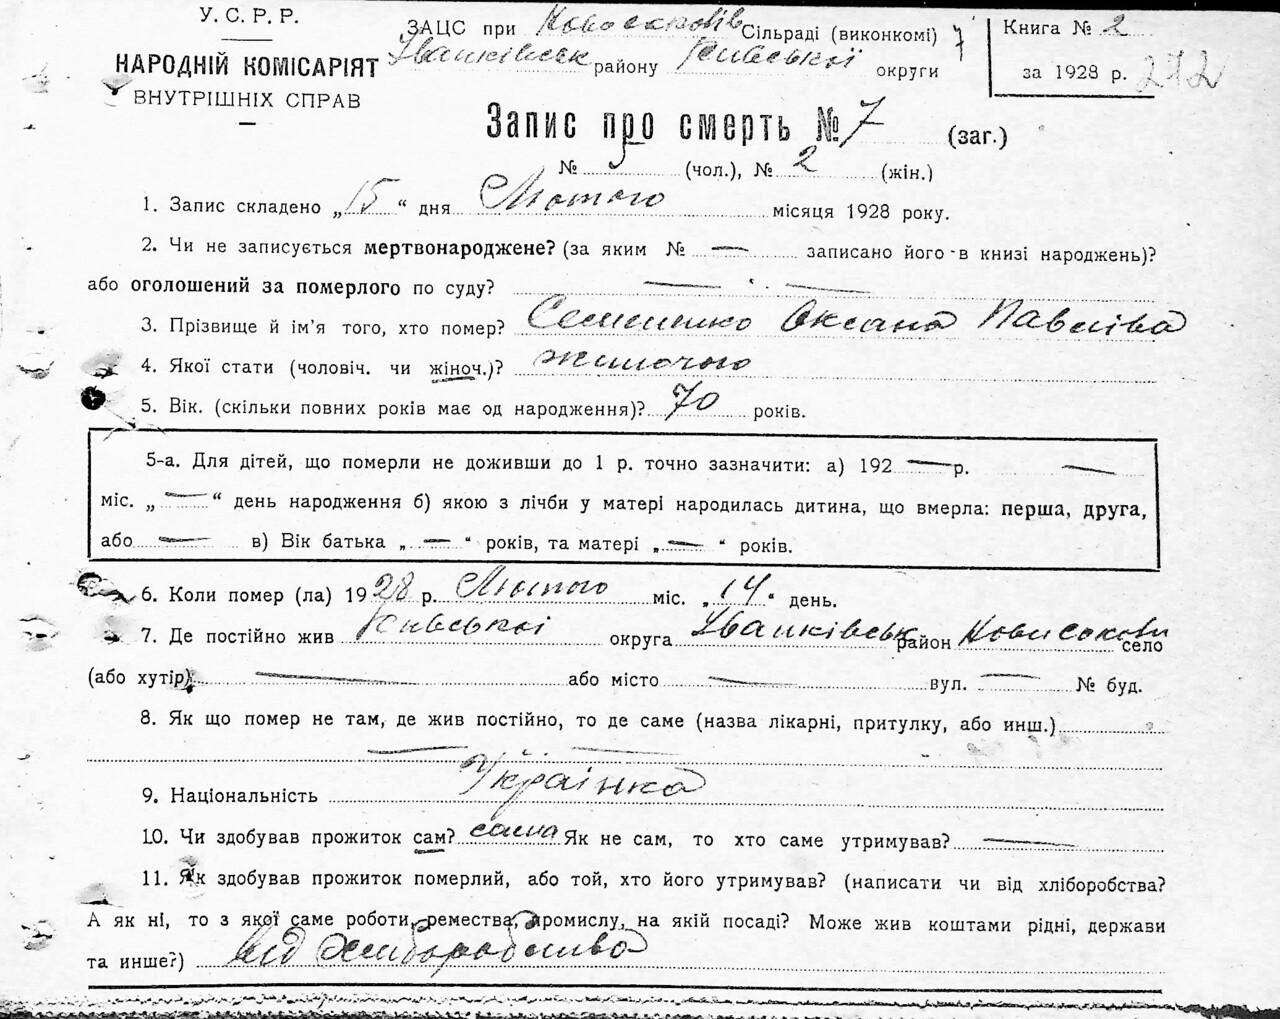 У. С. Р. Р.
НАРОДНІЙ КОМІСАРІЯТ
ВНУТРІШНІХ СПРАВ
ЗАЦС при Сільраді (виконкомі)
Іванківськ району Київської округи
Книга № 2
за 1928 р. 272
Запис про смерть № 7 (заг.)
№ 5 (чол.), № 2 (жін.)
1. Запис складено „15“ дня Лютого місяця 1928 року.
2. Чи не записується мертвонароджене? (за яким № — записано його в книзі народжень)?
або оголошений за померлого по суду? — —
3. Прізвище й ім'я того, хто помер? Семенко Оксана Павлівна
4. Якої стати (чоловіч. чи жіноч.)? жиночого
5. Вік. (скільки повних років має од народження)? 70 років.
5-а. Для дітей, що померли не доживши до 1 р. точно зазначити: а) 192 — р. —
міс. „ — “ день народження б) якою з лічби у матері народилась дитина, що вмерла: перша, друга,
або — в) Вік батька „ — “ років, та матері „ — “ років.
6. Коли помер (ла) 1928 р. Лютого міс. „14“ день.
7. Де постійно жив Київської округа Іванківськ район село
(або хутір) — або місто — вул. — № буд.
8. Як що помер не там, де жив постійно, то де саме (назва лікарні, притулку, або инш.)
— —
9. Національність Українка
10. Чи здобував прожиток сам? сама Як не сам, то хто саме утримував? —
11. Як здобував прожиток померлий, або той, хто його утримував? (написати чи від хліборобства?
А як ні, то з якої саме роботи, ремества, промислу, на якій посаді? Може жив коштами рідні, держави
та инше?) від хліборобства